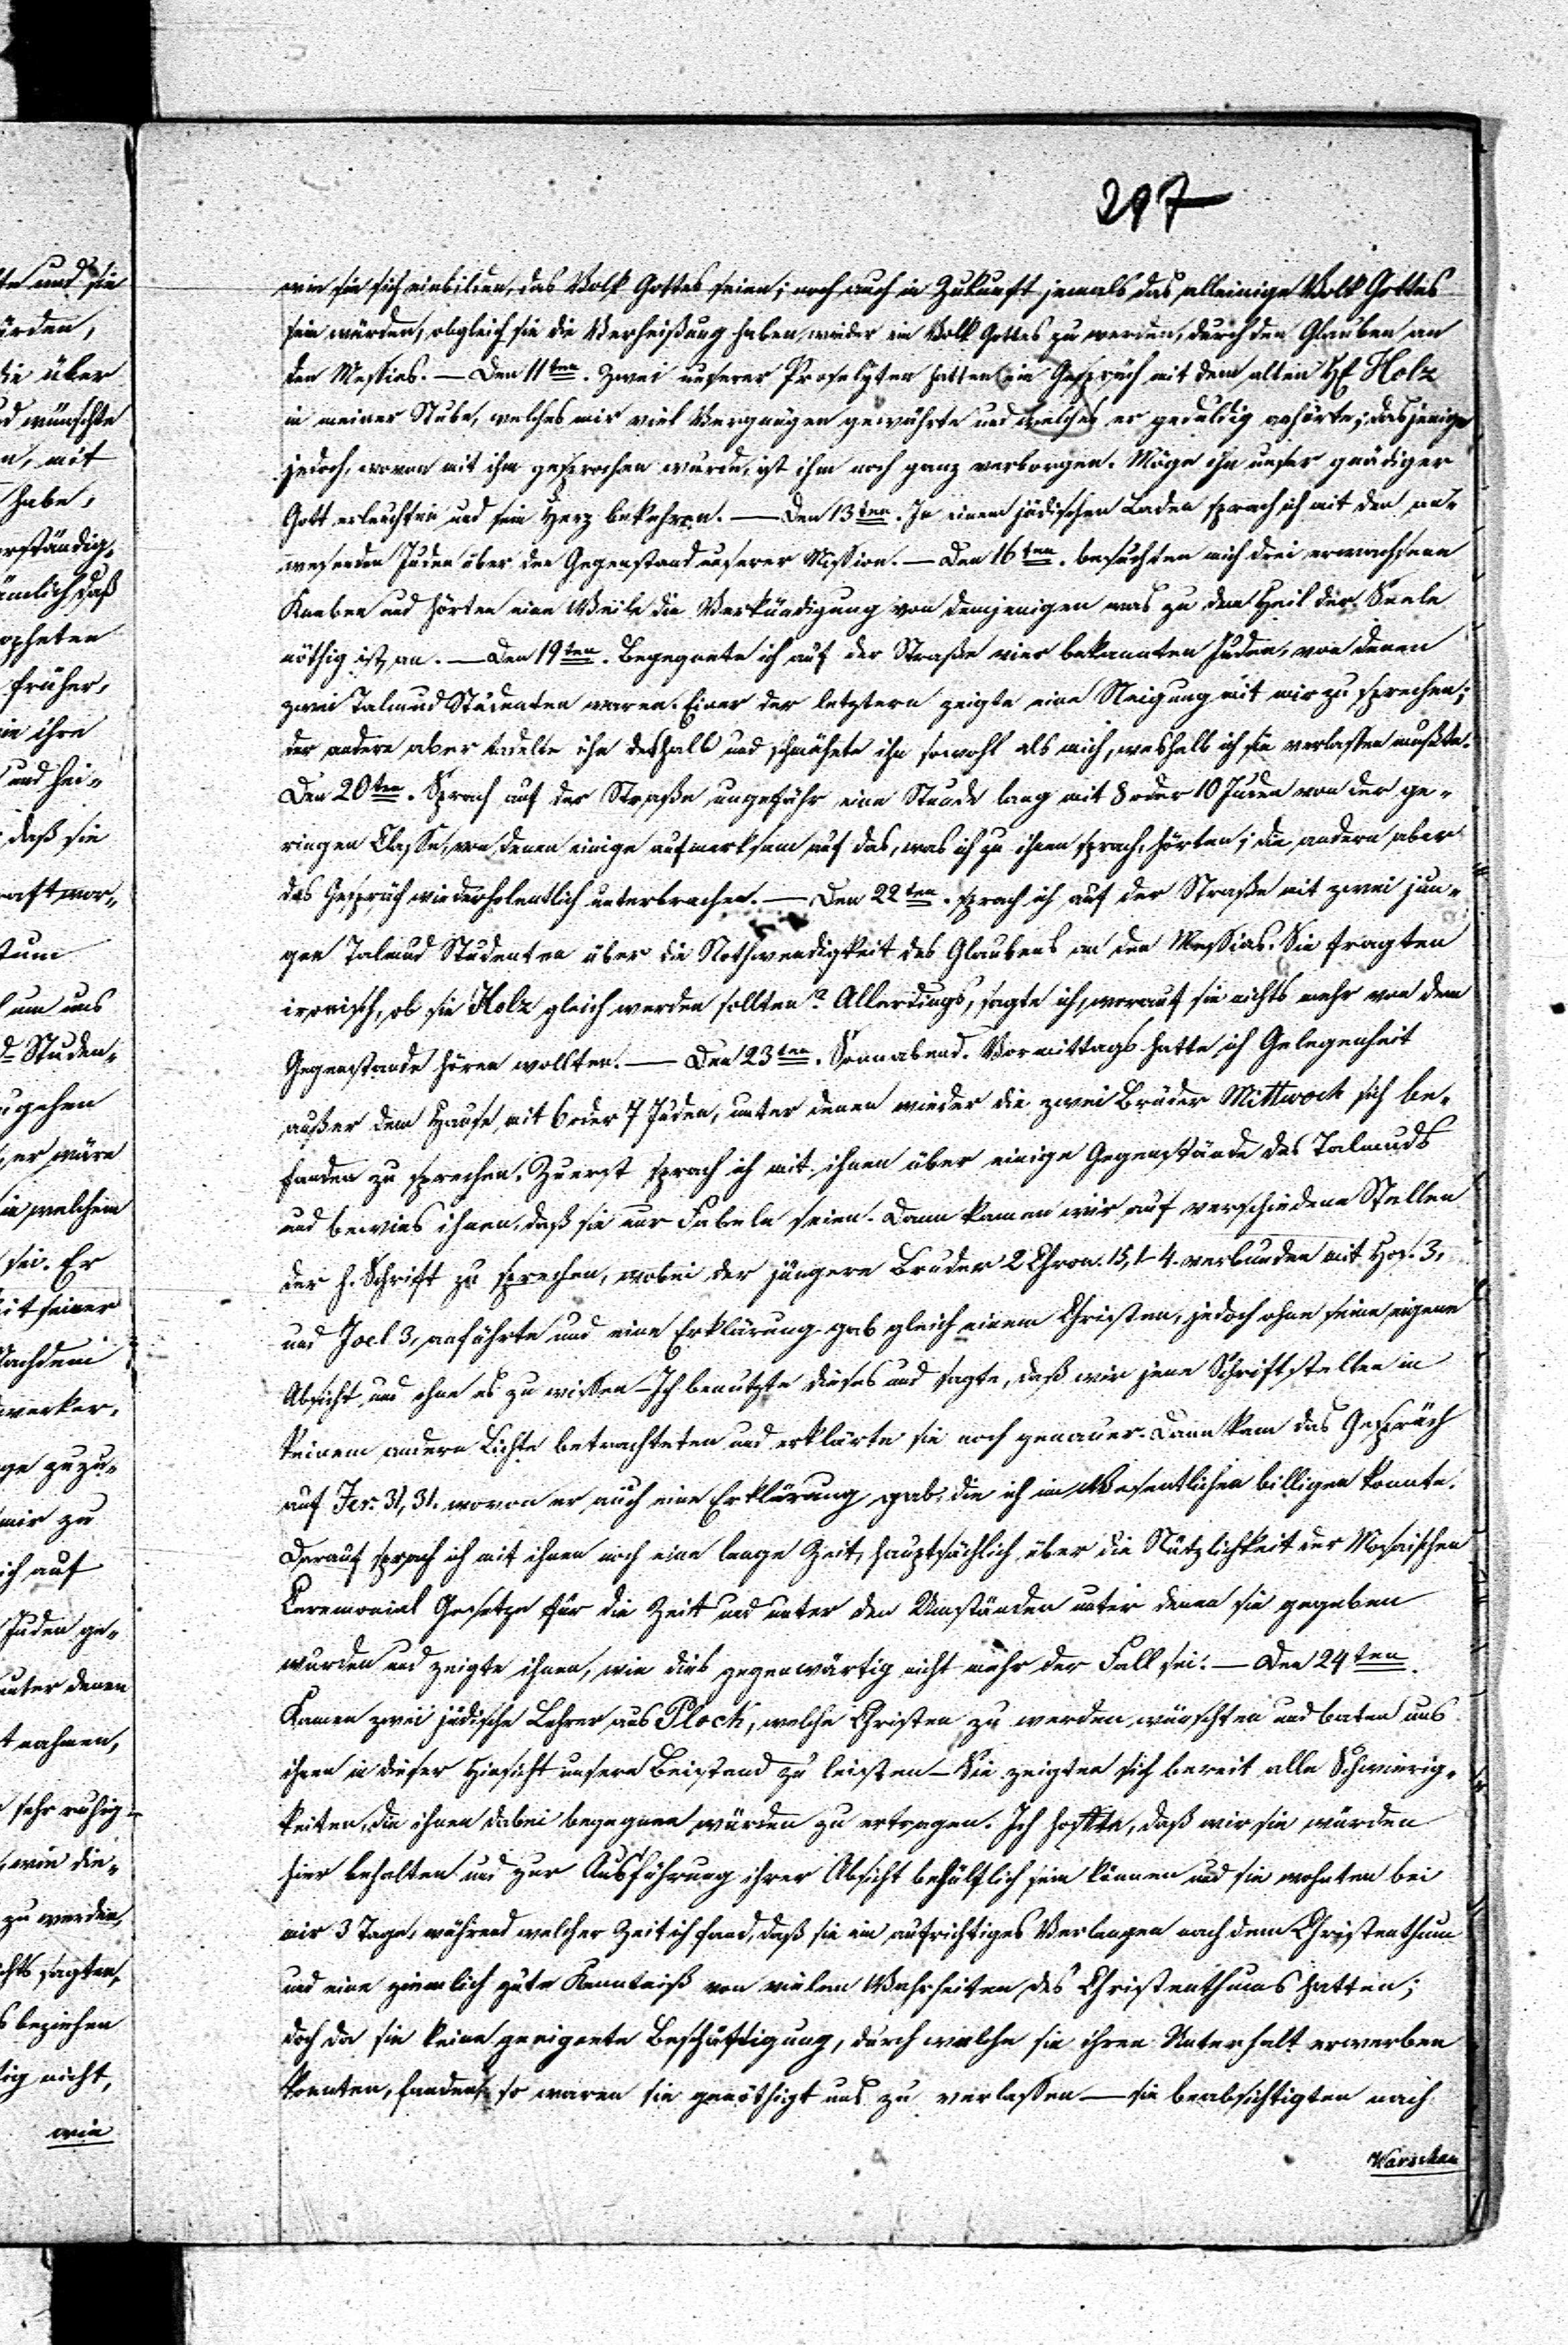 297
wie sie sich einbilden, das Volk Gottes seien; noch auch in Zukunft jemals das alleinige Volk Gottes
sein würden, obgleich sie die Verheißung haben, wieder ein Volk Gottes zu werden, durch den Glauben an
den Messias. — Den 11ten. Zwei unserer Proselyten hatten ein Gespräch mit dem alten H. Holz
in meiner Stube, welches mir viel Vergnügen gewährte und welches er geduldig anhörte; dasjenige
jedoch, wovon mit ihm gesprochen wurde, ist ihm noch ganz verborgen. Möge ihn unser gnädiger
Gott erleuchten und sein Herz bekehren. — Den 13ten. In einem jüdischen Laden sprach ich mit den an-
wesenden Juden über den Gegenstand unserer Mission. — Den 16ten. besuchten mich drei erwachsene
Knaben und hörten eine Weile die Verkündigung von demjenigen was zu dem Heil der Seele
nöthig ist, an. — Den 19ten. Begegnete ich auf der Straße vier bekannten Juden, von denen
zwei Talmud Studenten waren. Einer der letztern zeigte eine Neigung mit mir zu sprechen;
der andere aber tadelte ihn deshalb und schmähete ihn sowohl als mich, weshalb ich sie verlassen mußte.
Den 20ten. Sprach auf der Straße ungefähr eine Stunde lang mit 8 oder 10 Juden von der ge-
ringen Classe, von denen einige aufmerksam auf das, was ich zu ihnen sprach, hörten; die andern aber
das Gespräch wiederholentlich unterbrachen. — Den 22ten. sprach ich auf der Straße mit zwei jun-
gen Talmud Studenten über die Nothwendigkeit des Glaubens an den Messias. Sie fragten
ironisch, ob sie Holz gleich werden sollten? Allerdings, sagte ich, worauf sie nichts mehr von dem
Gegenstande hören wollten. — Den 23ten. Sonnabend. Vormittags hatte ich Gelegenheit
außer dem Hause mit 6 oder 7 Juden, unter denen wieder die zwei Brüder Mittwoch sich be-
fanden zu sprechen. Zuerst sprach ich mit ihnen über einige Gegenstände des Talmuds
und bewies ihnen, daß sie nur Fabeln seien. Dann kamen wir auf verschiedene Stellen
der h. Schrift zu sprechen, wobei der jüngere Bruder 2 Chron. 15, 1-4. verbunden mit Hos. 3,
und Joel 3, anführte und eine Erklärung gab gleich einem Christen, jedoch ohne seine eigene
Absicht und ohne es zu wissen - Ich benutzte dieses und sagte, daß wir jene Schriftstellen in
keinem andern Lichte betrachteten und erklärte sie noch genauer. Dann kam das Gespräch
auf Jer. 31, 31. wovon er auch eine Erklärung gab, die ich im Wesentlichen billigen konnte.
Darauf sprach ich mit ihnen noch eine lange Zeit, hauptsächlich über die Nützlichkeit der Mosaischen
Ceremonial Gesetze für die Zeit und unter den Umständen unter denen sie gegeben
wurden und zeigte ihnen, wie dies gegenwärtig nicht mehr der Fall sei. — Den 24ten.
Kamen zwei jüdische Lehrer aus Plock, welche Christen zu werden wünschten und baten uns
ihnen in dieser Hinsicht unsern Beistand zu leisten — Sie zeigten sich bereit alle Schwierig-
keiten, die ihnen dabei begegnen würden zu ertragen. Ich hoffte, daß wir sie würden
hier behalten und zur Ausführung ihrer Absicht behülflich sein können und sie wohnten bei
mir 3 Tage, während welcher Zeit ich fand, daß sie ein aufrichtiges Verlangen nach dem Christenthum
und eine ziemlich gute Kenntniß von vielen Wahrheiten des Christenthums hatten;
doch da sie keine geeignete Beschäftigung, durch welche sie ihren Unterhalt erwerben
konnten, fanden, so waren sie genöthigt uns zu verlassen — sie beabsichtigten nach
Warschau